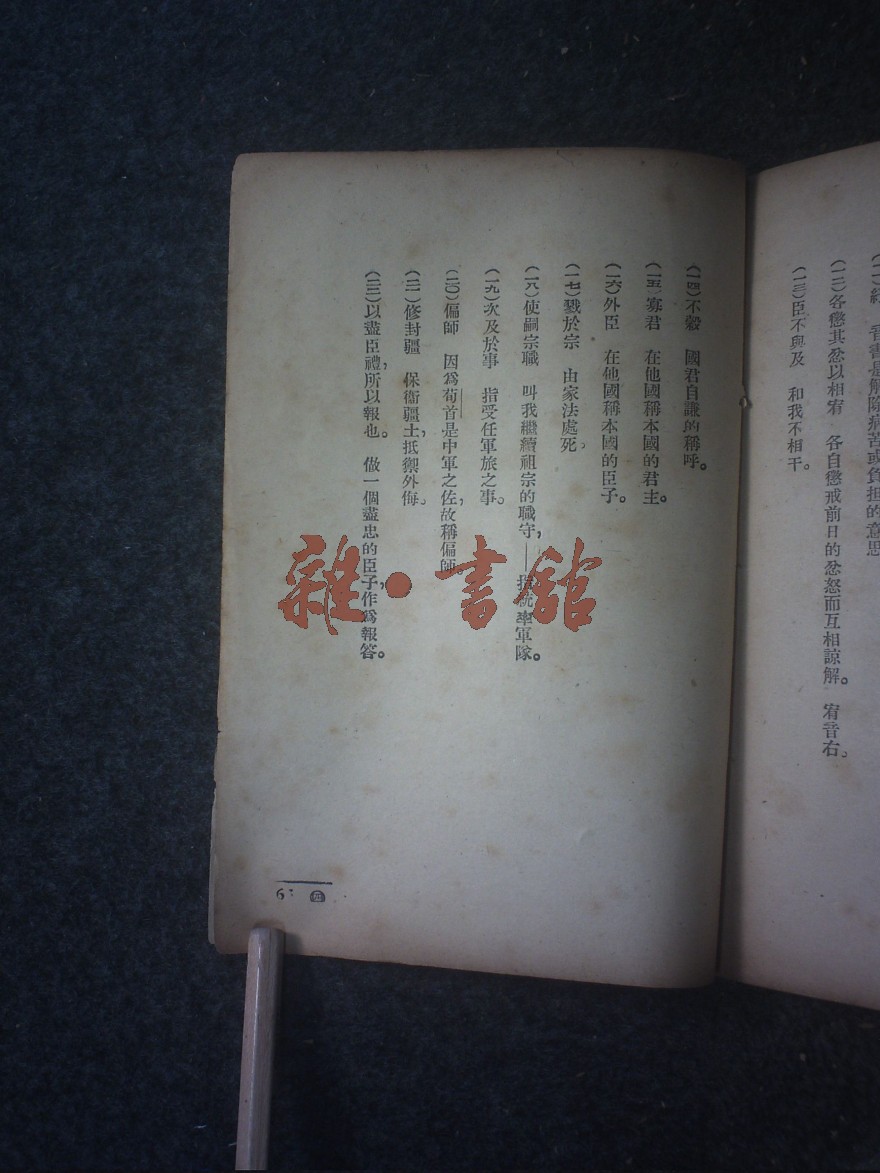 音書是解除病苦或負担的意思
(一二)各懲其忿以相宥　各自懲戒前日的忿怒而互相諒解。　宥音右。
(一三)臣不與及　和我不相干。
(一四)不穀　國君自謙的稱呼。
(一五)寡君　在他國稱本國的君主。
(一六)外臣　在他國稱本國的臣子。
(一七)戮於宗　由家法處死。
(一八)使嗣宗職　叫我繼續祖宗的職守，——指統率軍隊。
(一九)次及於事　指受任軍旅之事。
(二〇)偏師　因為荀首是中軍之佐，故稱偏師。
(二一)修封疆　保衞疆土，抵禦外侮。
(二二)以盡臣禮，所以報也。　做一個盡忠的臣子，作為報答。
雜·書館